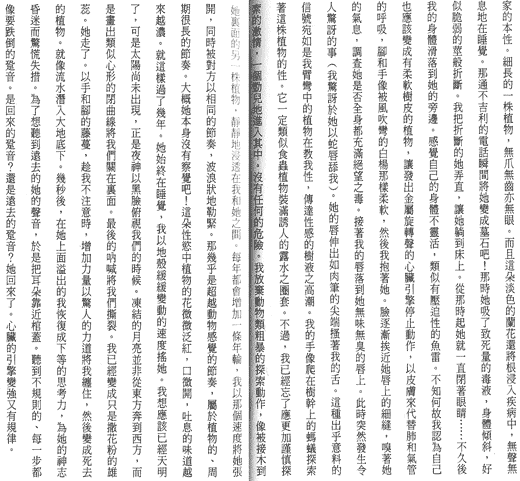 家的本性。細長的一株植物，無爪無齒亦無眼。而且這朵淡色的蘭花還將根浸入疾病中，無聲無
息地在睡覺。那通不吉利的電話瞬間將她變成墓石吧！那時她吸了致死量的毒液，身體傾斜，好
似脆弱的莖般折斷。我把折斷的她弄直，讓她躺到床上。從那時起她就一直閉著眼睛……不久後
我的身體滑落到她的旁邊。感覺自己的身體不靈活，類似有壓迫性的魚雷。不知何故我認為自己
也應該變成有柔軟樹皮的植物，讓發出金屬旋轉聲的心臟引擎停止動作，以皮膚來代替肺和氣管
的呼吸，腳和手像被風吹彎的白楊那樣柔軟，然後我抱著她。臉逐漸挨近她唇上的細縫，嗅著她
的氣息，調查她是否全身都充滿絕望之毒。接著我的唇落到她無味無臭的唇上。此時突然發生令
人驚訝的事（我驚訝於她以蛇唇舔我）。她的唇伸出如肉筆的尖端搔著我的舌。這種出乎意料的
信號宛如是我臂彎中的植物在教我性，傳達性感的樹液之高潮。我的手像爬在樹幹上的螞蟻探索
著這株植物的性。它一定類似食蟲植物裝滿誘人的露水之圈套。不過，我已經忘了應更加謹慎探
索的激情，一個勁兒地進入其中，沒有任何的危險。我放棄動物類粗暴的探索動作，像被接木到
她裏面的另一株植物，靜靜地浸透在我和她之間，每年都會增加一條年輪，我以那個速度將她張
開，同時被對方以相同的節奏，波浪狀地勒緊。那幾乎是超越動物感覺的節奏，屬於植物的、周
期很長的節奏。大概她本身沒有察覺吧！這朵性慾中植物的花微微泛紅，口微開。吐息的味道越
來越濃。就這樣過了幾年。她始終在睡覺，我以地殼緩緩變動的速度搖她。我想應該已經天明
了，可是太陽尚未出現，正是夜神以黑臉俯視我們的時候。凍結的月亮並非從東方奔到西方，而
是畫出類似心形的閉曲線將我們關在裏面。最後的吶喊將我們撕裂。我已經變成只是撒花粉的雄
蕊。她走了。以手和腳的藤蔓，趁我不注意時，增加力量以驚人的力道將我纏住，然後變成死去
的植物。就像流水潛入大地底下。幾秒後，在她上面溢出的我恢復成下等的思考力，為她的神志
昏迷而驚慌失措。為了想聽到遠去的她的聲音，於是把耳朵靠近棺蓋。聽到不規則的、每一步都
像要跌倒的跫音。是回來的跫音？還是遠去的跫音？她回來了。心臟的引擎變強又有規律。